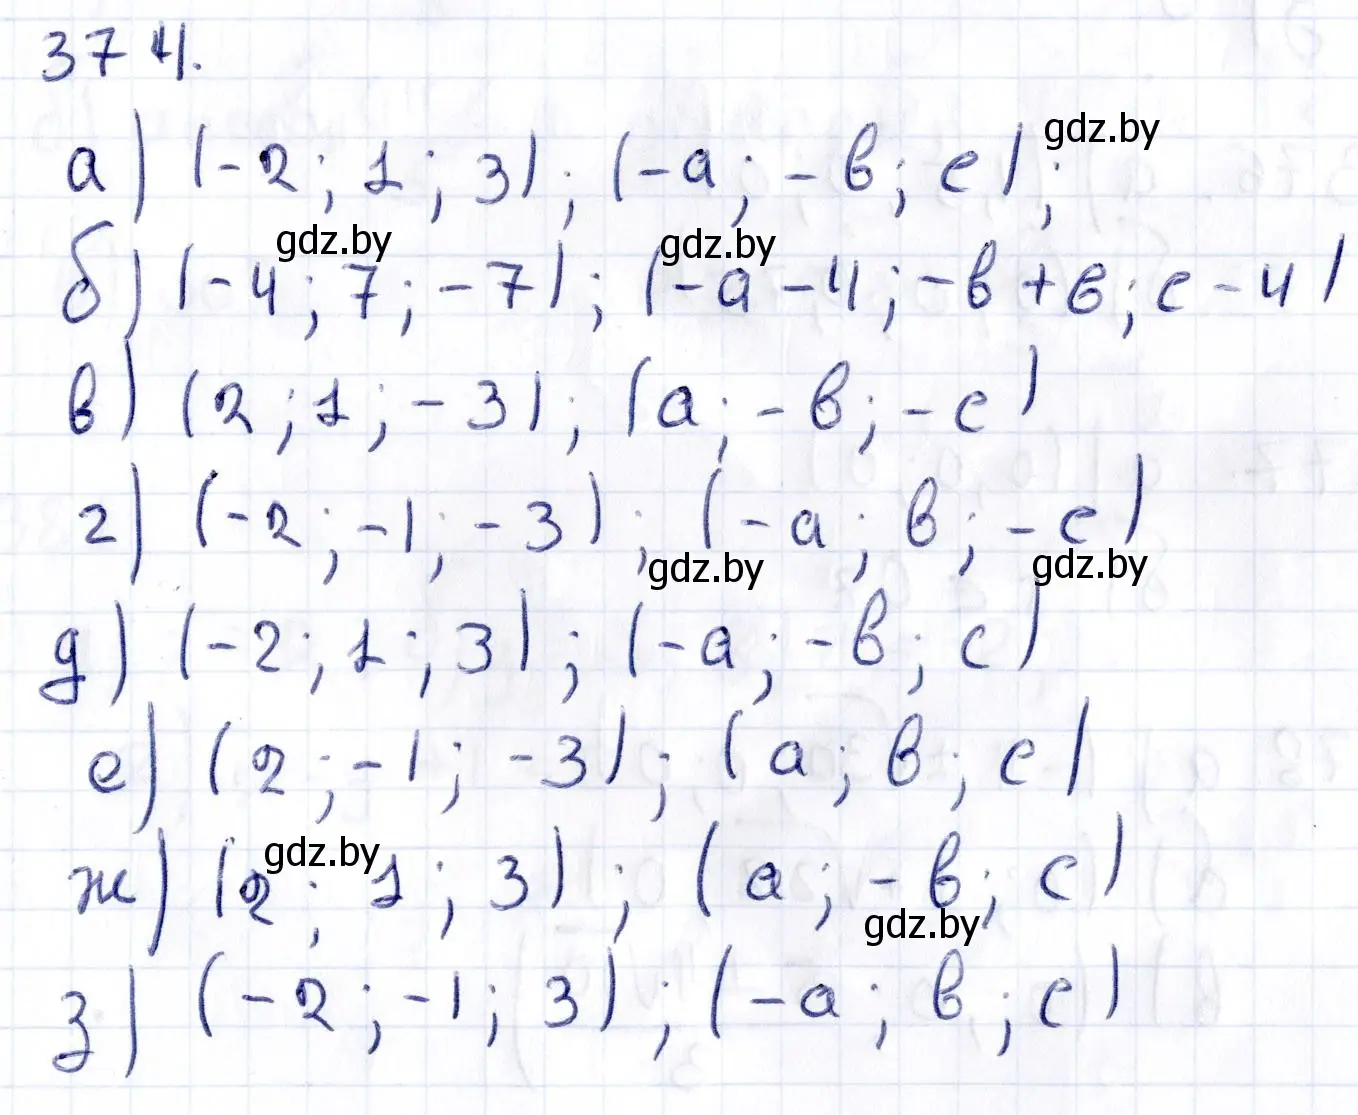 374.
gdz.by
а) (-2; 1; 3); (-а; -в; с);
gdz.by gdz.by
б) (-4; 7; -7); (-а-4; -в+6; с-4)
в) (2; 1; -3); (а; -в; -с)
г) (-2; -1; -3); (-а; в; -с)
gdz.by gdz.by
д) (-2; 1; 3); (-а; -в; с)
е) (2; -1; -3); (а; в; с)
gdz.by
ж) (2; 1; 3); (а; -в; с)
gdz.by
з) (-2; -1; 3); (-а; в; с)